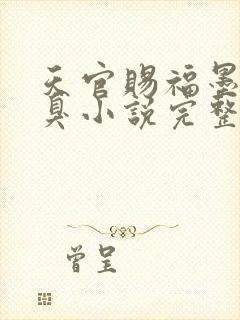 天官賜福墨
臭小說完整
曾呈